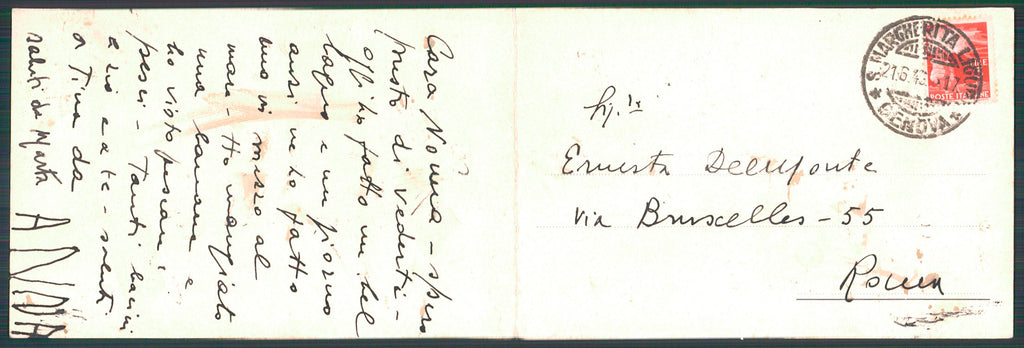 Cara Nonna - spero
presto di vederti -
oggi ho fatto un bel
bagno e un giorno
anzi ne ho fatto
uno in mezzo al
mare - Ho mangiato
una banana e
ho visto pescare i
pesci - Tanti bacini
a zio e a te - saluti
a Tina da
saluti da Marta
S. MARGHERITA LIGURE
21.6.4
17
* GENOVA *
POSTE ITALIANE
Ernesta
Via Bruxelles - 55
Roma